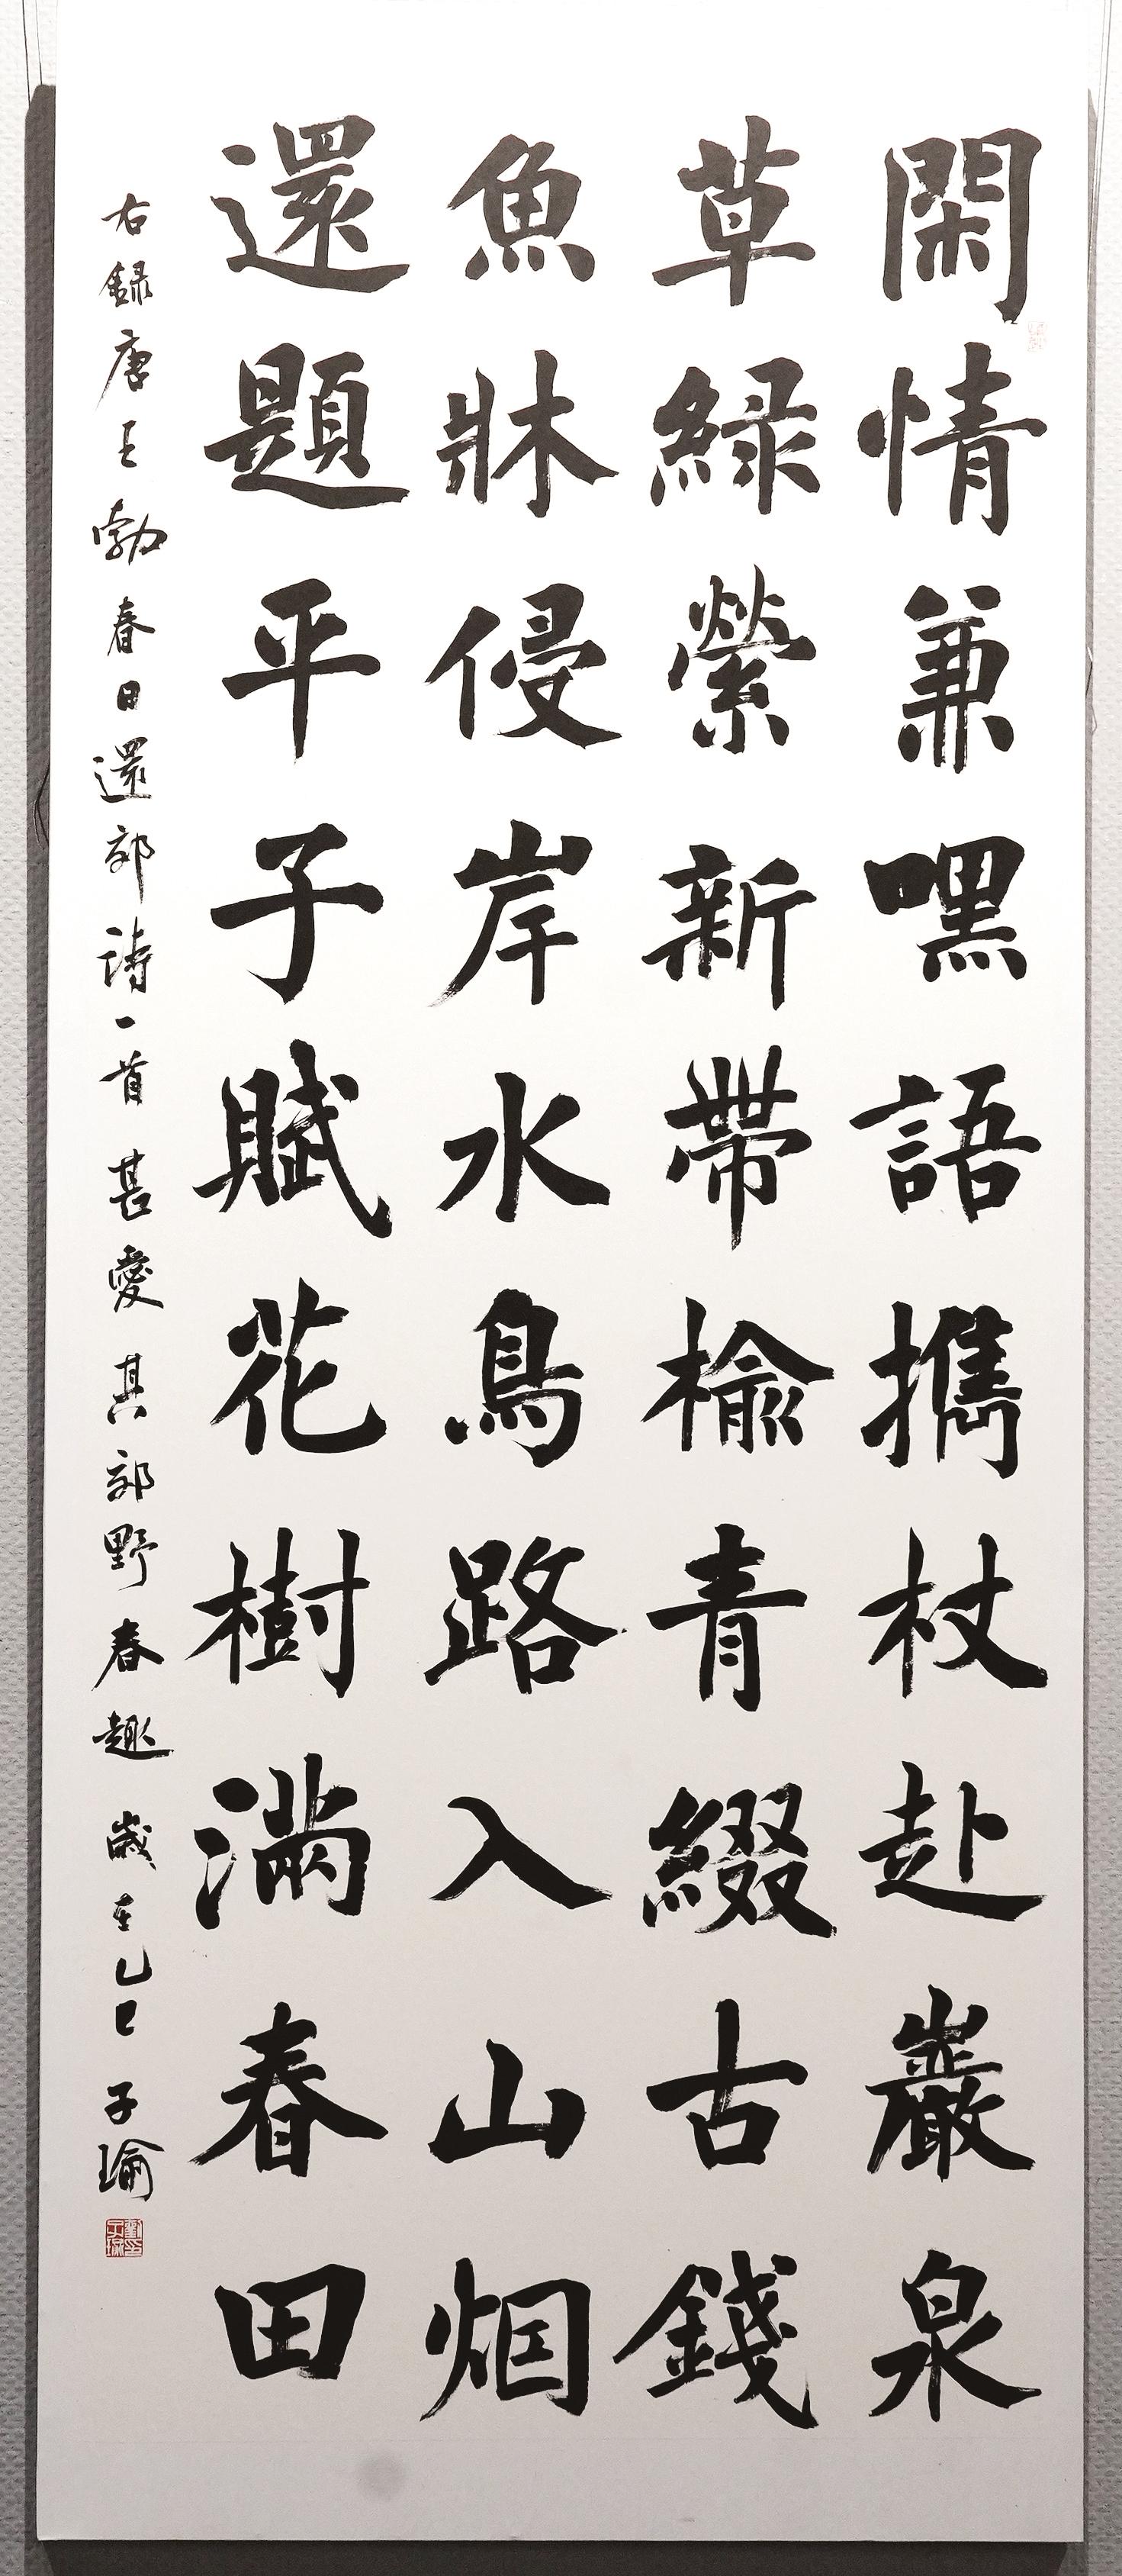 閑情兼嘿語攜杖赴巖泉
草綠縈新帶榆青綴古錢
魚牀侵岸水鳥路入山烟
還題平子賦花樹滿春田
右録唐王勃春日還郊詩一首甚愛其郊野春趣歲在乙巳子瑜